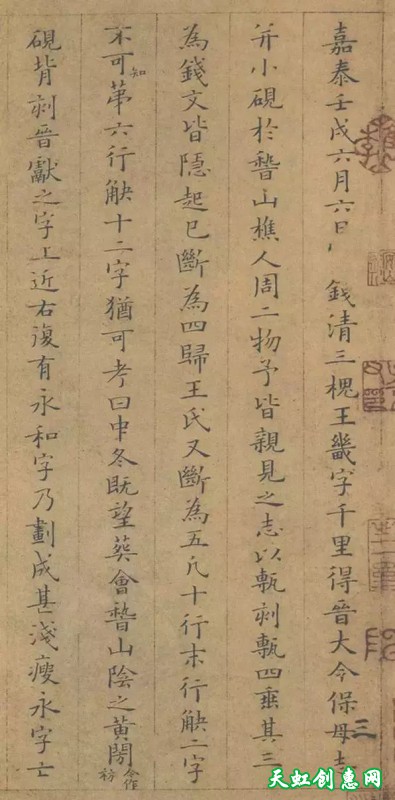 嘉泰壬戌六月六日錢清三槐王畿字千里得晉大令保母志
并小硯於稽山樵人周二物予皆親見之志以甎刻甎四垂其三
為錢文皆隱起已斷為四歸王氏又斷為五凡十行末行缺二字
不可知苐六行缺十二字猶可考曰中冬既望葬會稽山陰之黃閍
硯背刻晉獻之字上近右復有永和字乃劃成甚淺瘦永字亡
今作祊
天虹创惠网